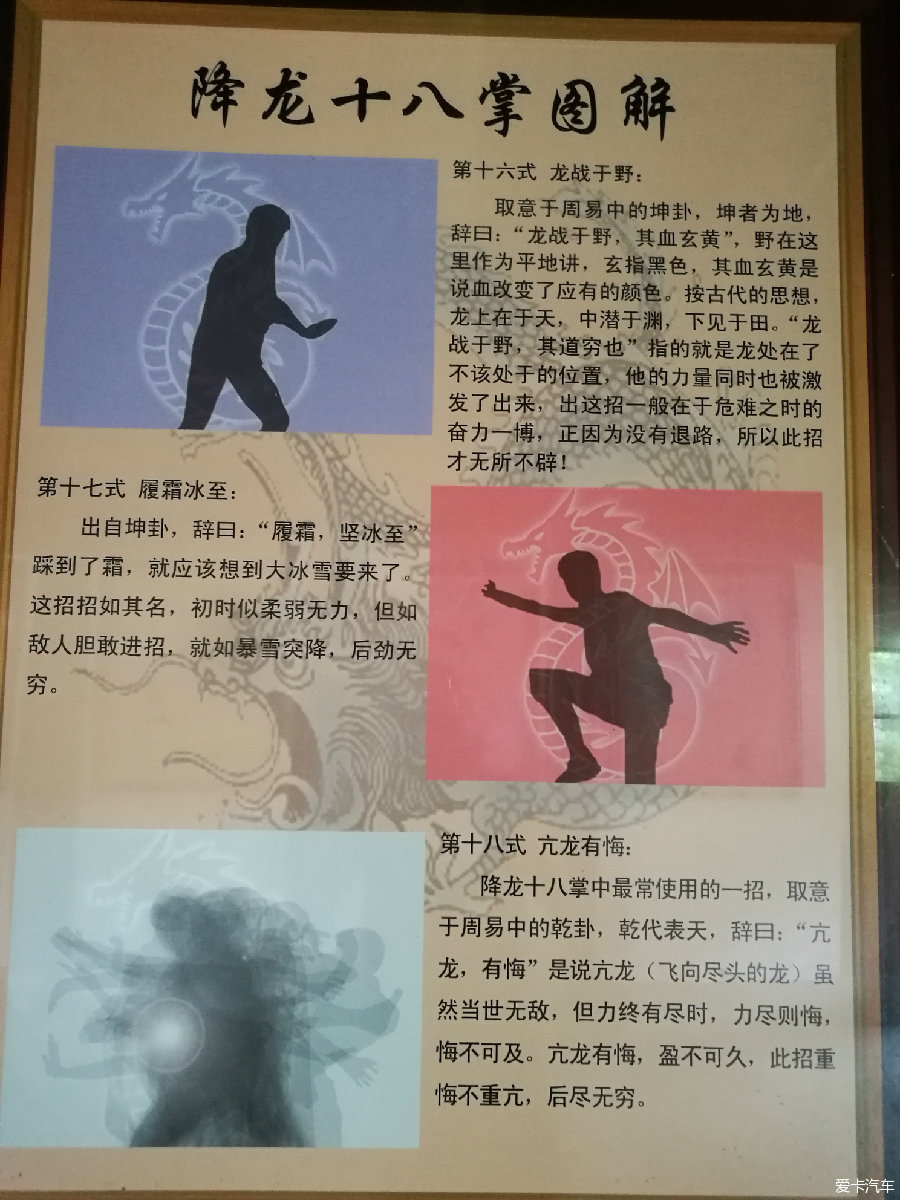 降龙十八掌图解
第十六式 龙战于野：
取意于周易中的坤卦，坤者为地，
辞曰：“龙战于野，其血玄黄”，野在这
里作为平地讲，玄指黑色，其血玄黄是
说血改变了应有的颜色。按古代的思想，
龙上在于天，中潜于渊，下见于田。“龙
战于野，其道穷也”指的就是龙处在了
不该处于的位置，他的力量同时也被激
发了出来，出这招一般在于危难之时的
奋力一博，正因为没有退路，所以此招
才无所不辟！
第十七式 履霜冰至：
出自坤卦，辞曰：“履霜，坚冰至”
踩到了霜，就应该想到大冰雪要来了。
这招招如其名，初时似柔弱无力，但如
敌人胆敢进招，就如暴雪突降，后劲无
穷。
第十八式 亢龙有悔：
降龙十八掌中最常使用的一招，取意
于周易中的乾卦，乾代表天，辞曰：“亢
龙，有悔”是说亢龙（飞向尽头的龙）虽
然当世无敌，但力终有尽时，力尽则悔，
悔不可及。亢龙有悔，盈不可久，此招重
悔不重亢，后尽无穷。
爱卡汽车